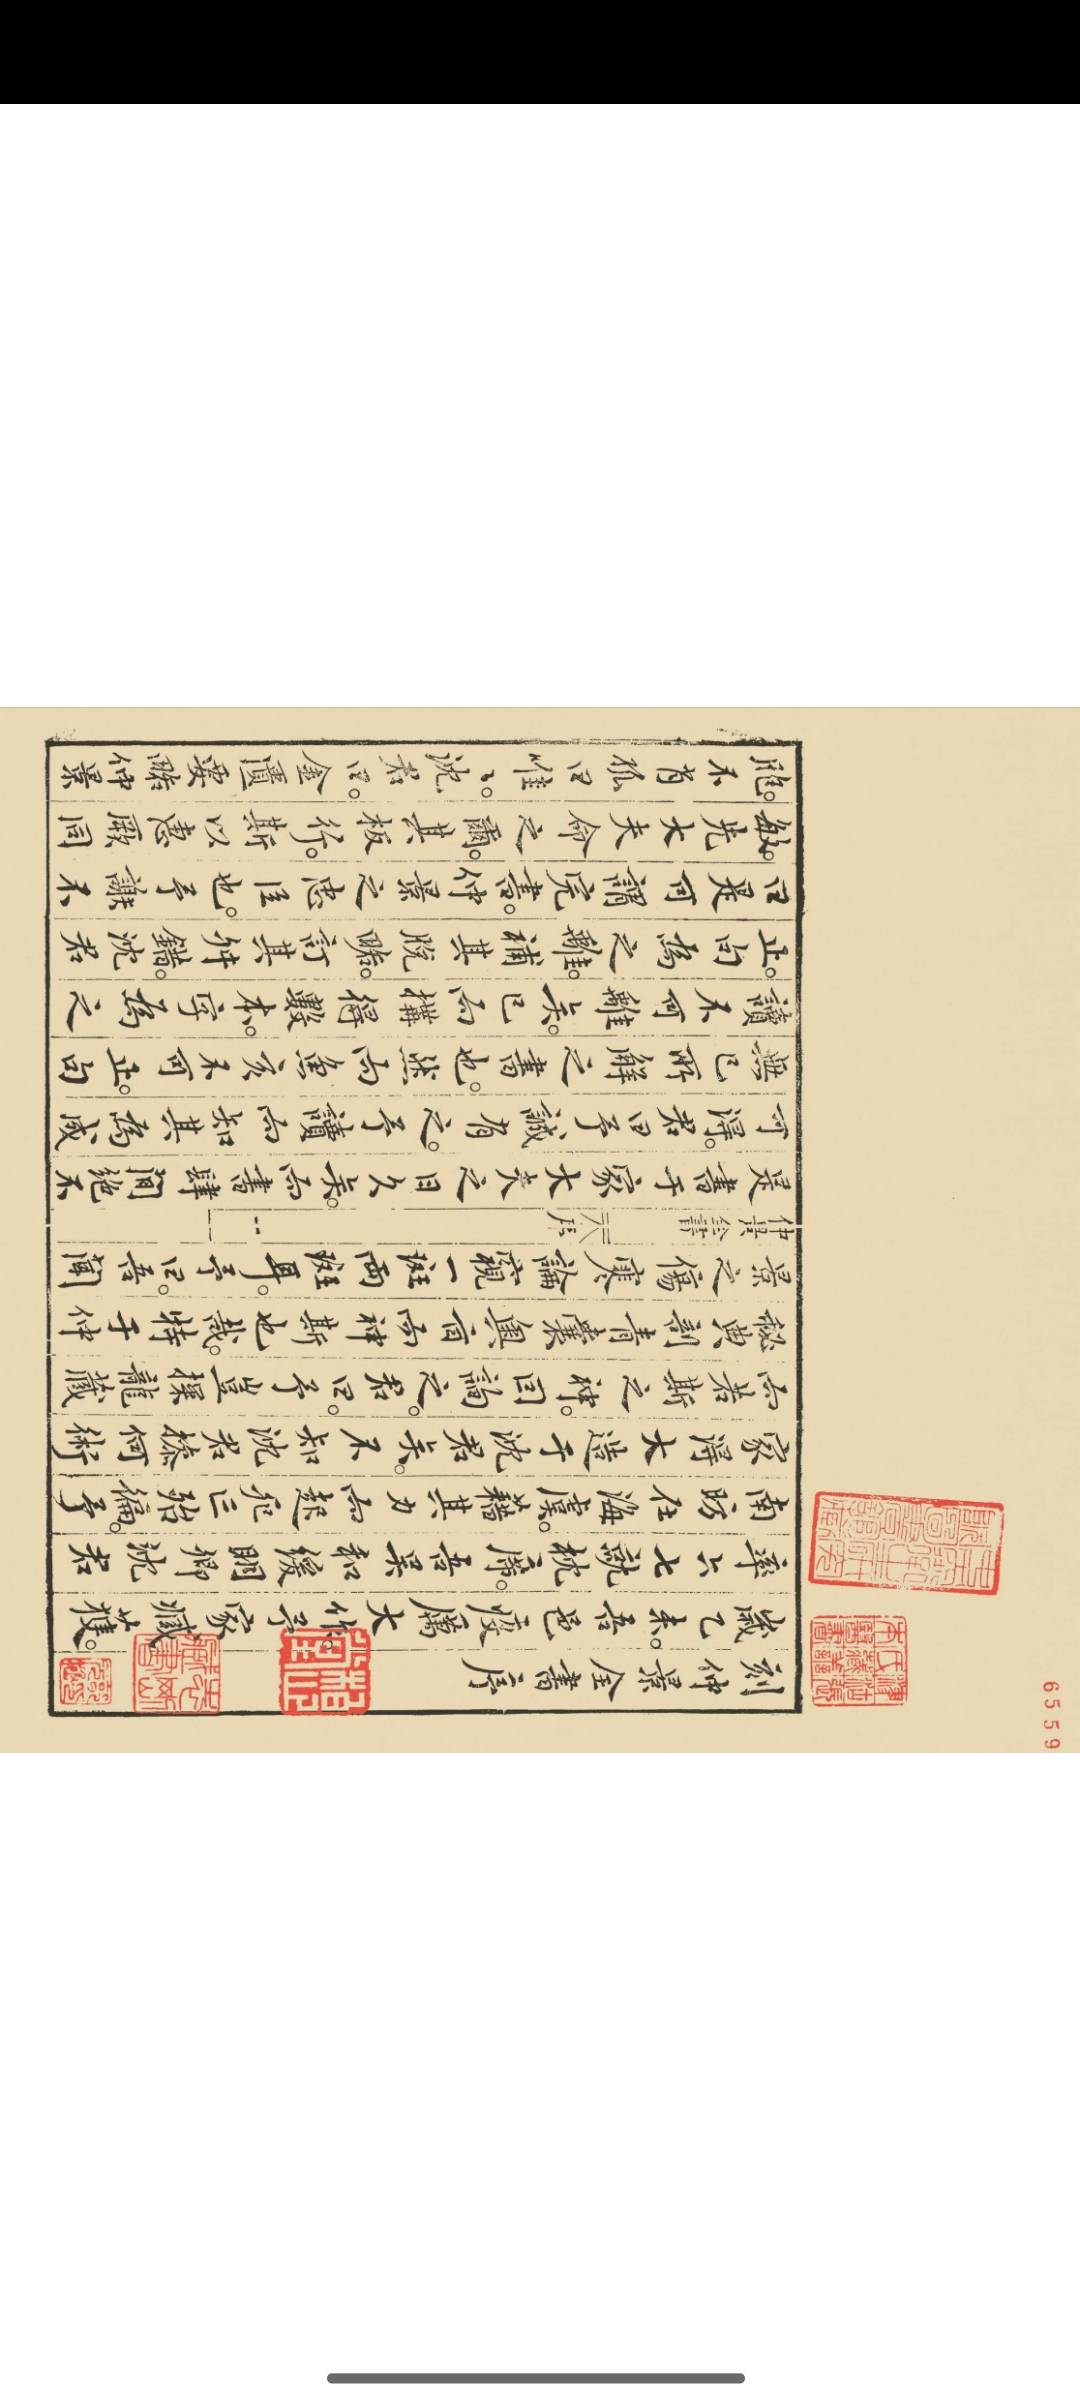 刻仲景全書序
歲乙未。吾邑疫厲大作予家臧獲。
率六七就枕席。吾吳和緩明卿沈君
南昉在海虞。藉其力而起死亡殆徧。予
家得大造于沈君矣。不知沈君操何術
而若斯之神。囙詢之。君曰。予豈探龍藏
秘典剖青囊奧旨而神斯也哉。特于仲
景之傷寒論窺一斑兩斑耳。予曰。吾聞
仲景全書
是書于家大夫之日久矣。而書肆間絕不
可得。君曰予誠有之。予讀而知其為成
無已所解之書也。然而魚亥不可正句
讀不可離矣。已而搆得數本。字為之
正。句為之離。補其脫畧。訂其舛錯。沈君
曰是可謂完書。仲景之忠臣也。予謝不
敏。先大夫命之爾。其板行。斯以惠厥同
胞。不肖孤曰唯〻。沈君曰。金匱要略仲景
6559